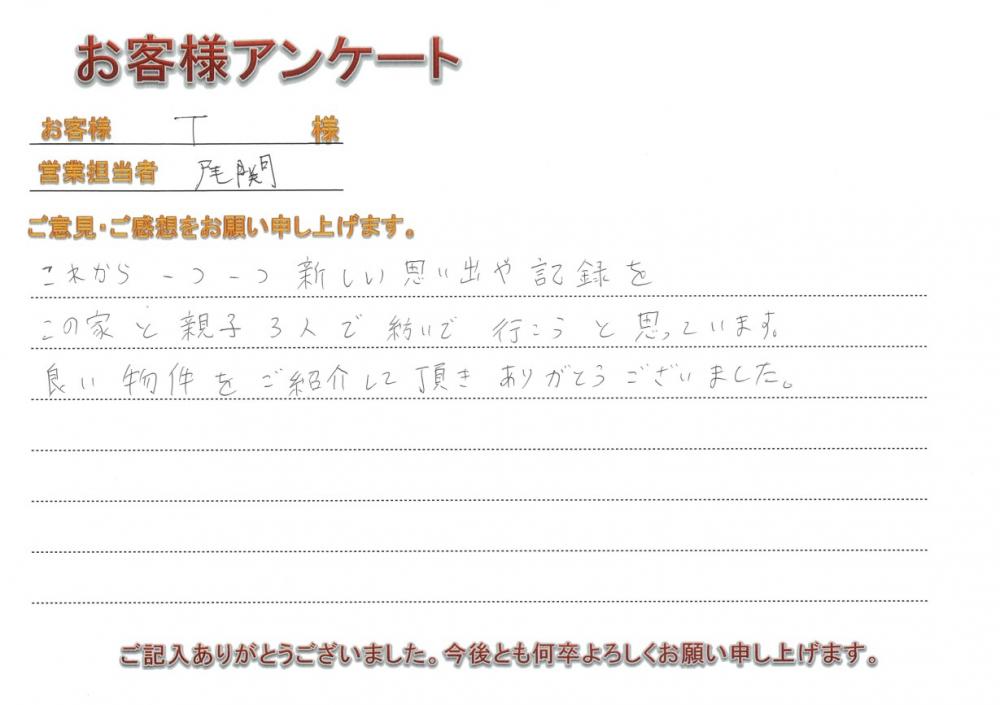 お客様アンケート
お客様 T 様
営業担当者 尾関
ご意見・ご感想をお願い申し上げます。
これから 一つ一つ 新しい思い出や記録を
この家と親子3人で紡いで行こうと思っています。
良い物件をご紹介して頂きありがとうございました。
ご記入ありがとうございました。今後とも何卒よろしくお願い申し上げます。